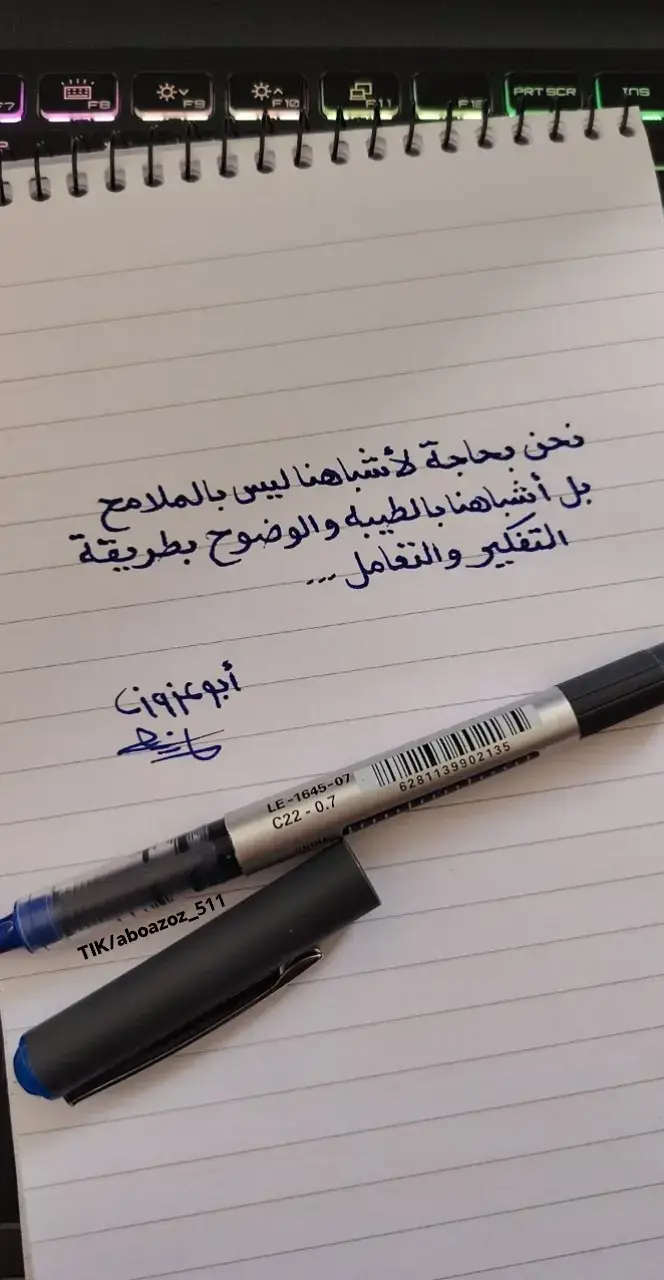 F7 F8 F9 F10 F11 F12 PRT SCR INS
نحن بحاجة لأشباهنا ليس بالملامح
بل أشباهنا بالطيبه والوضوح بطريقة
التفكير والتعامل ...
أبو عزوز
LE-1645-07
C22 - 0.7
6281139902135
TIK/aboazoz_511